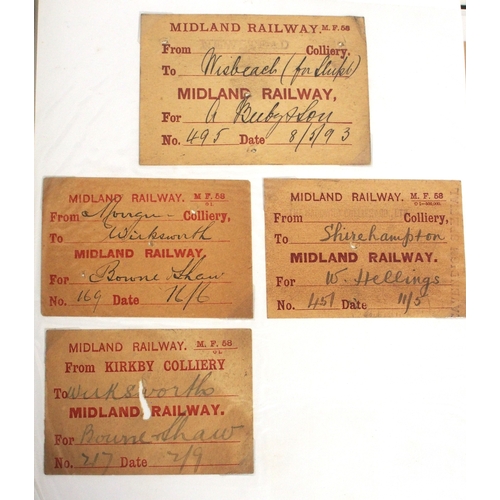 MIDLAND RAILWAY. M. F. 58
From Colliery,
To Wisbeach (for Ships)
MIDLAND RAILWAY,
For A & Son
No. 495 Date 8/5/93
MIDLAND RAILWAY. M F. 58
From Colliery,
To Wirksworth
MIDLAND RAILWAY.
For Bowne Shaw
No. 169 Date 16/6
MIDLAND RAILWAY. M. F. 58
From Colliery,
To Shirehampton
MIDLAND RAILWAY.
For W. Hellings
No. 451 Date 11/5
MIDLAND RAILWAY. M. F. 58
From KIRKBY COLLIERY
To Wirksworth
MIDLAND RAILWAY.
For Bourne Shaw
No. 217 Date 2/9